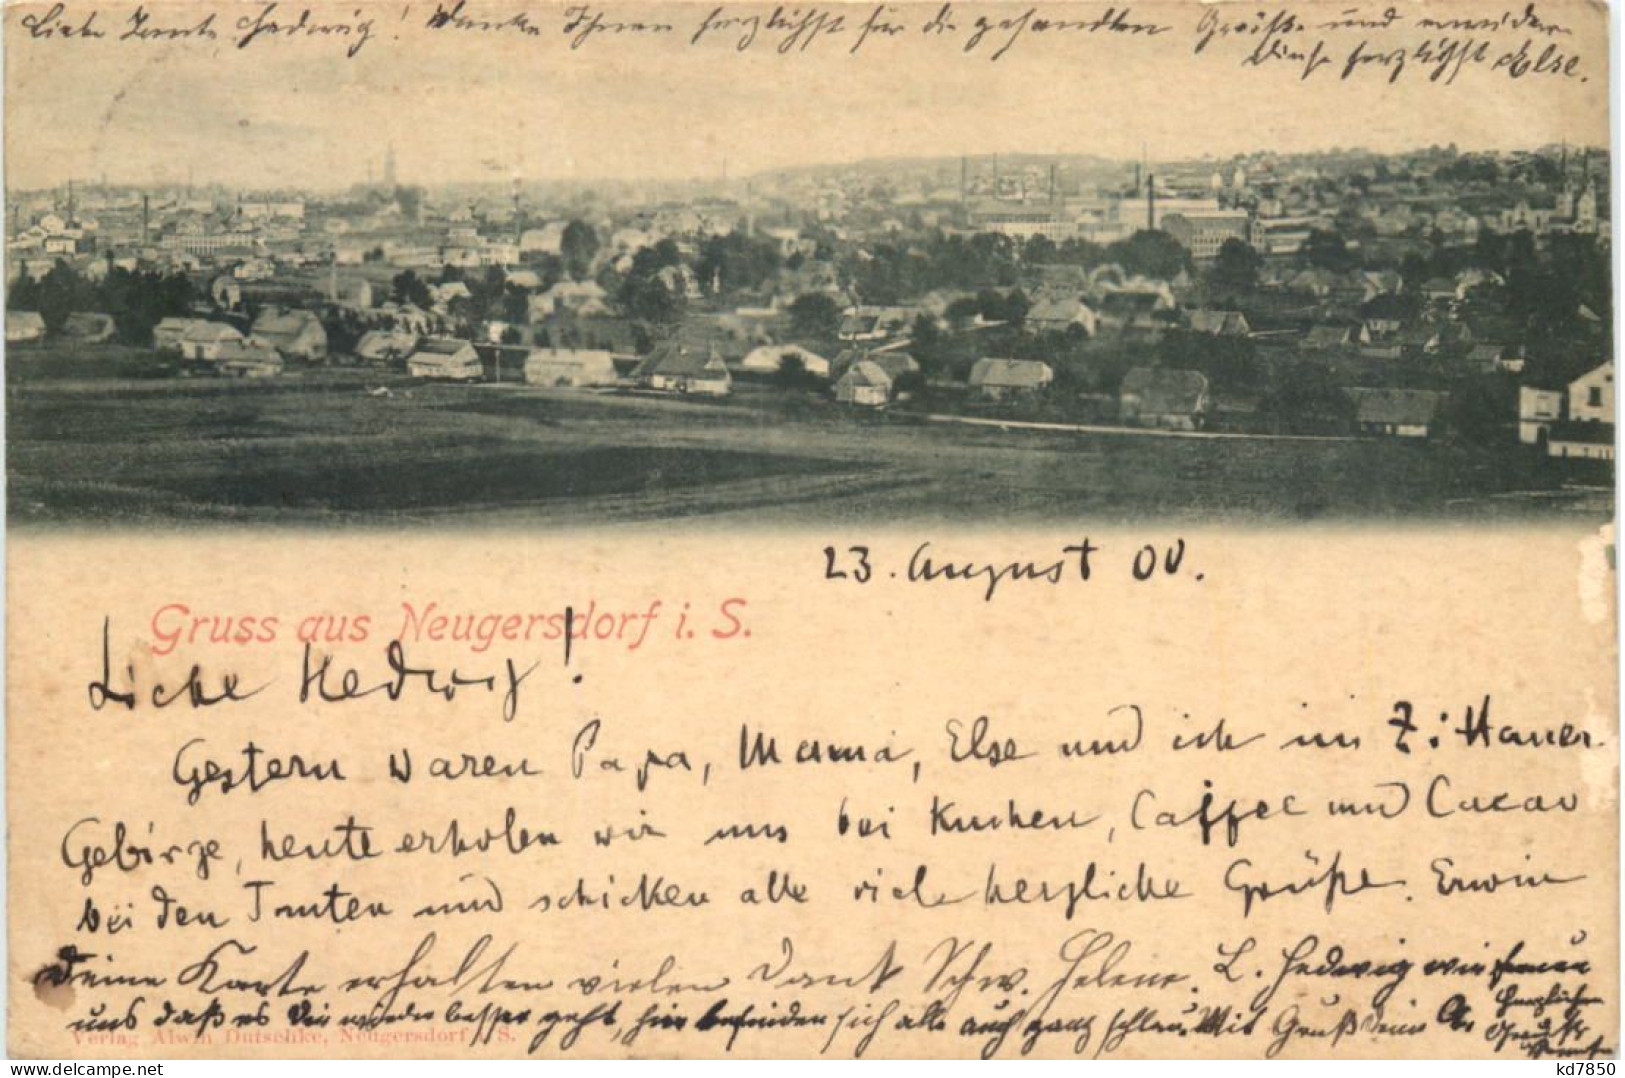 Liebe Tante Hedwig! Danke Ihnen herzlichst für die gesandten Grüße und erwidere
diese herzlichst Else.
23. August 00.
Gruss aus Neugersdorf i. S.
Liebe Hedwig!
Gestern waren Papa, Mama, Else und ich im Zittauer
Gebirge, heute erholen wir uns bei Kuchen, Caffee und Cacao
bei den Tanten und schicken alle viele herzliche Grüße. Erwin
Deine Karte erhalten vielen Dank Schw. Helene. L. Hedwig wir freuen
uns daß es Dir wieder besser geht, hier befinden sich alle auch ganz Mit Gruß Dein
Herzlichen
Verlag Alwin Dutschke, Neugersdorf i. S.
kd7850